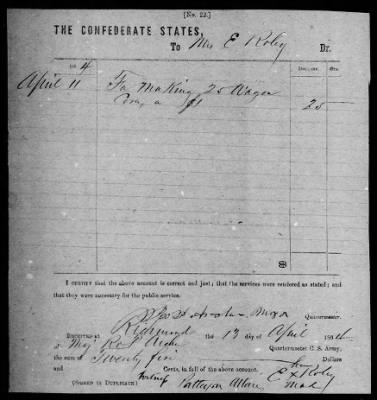 [No. 22.]
THE CONFEDERATE STATES,
To Mrs E Roley Dr.
186 4 DOLLARS. CTS.
April 11 For Making 25 Wagon
@ $1 25
I CERTIFY that the above account is correct and just; that the services were rendered as stated; and
that they were necessary for the public service.
Quartermaster.
RECEIVED at Richmond the 13 day of April 186
of Maj Quartermaster C. S. Army,
the sum of Twenty five Dollars
and Cents, in full of the above account.
E Roley
(SIGNED IN DUPLICATE)